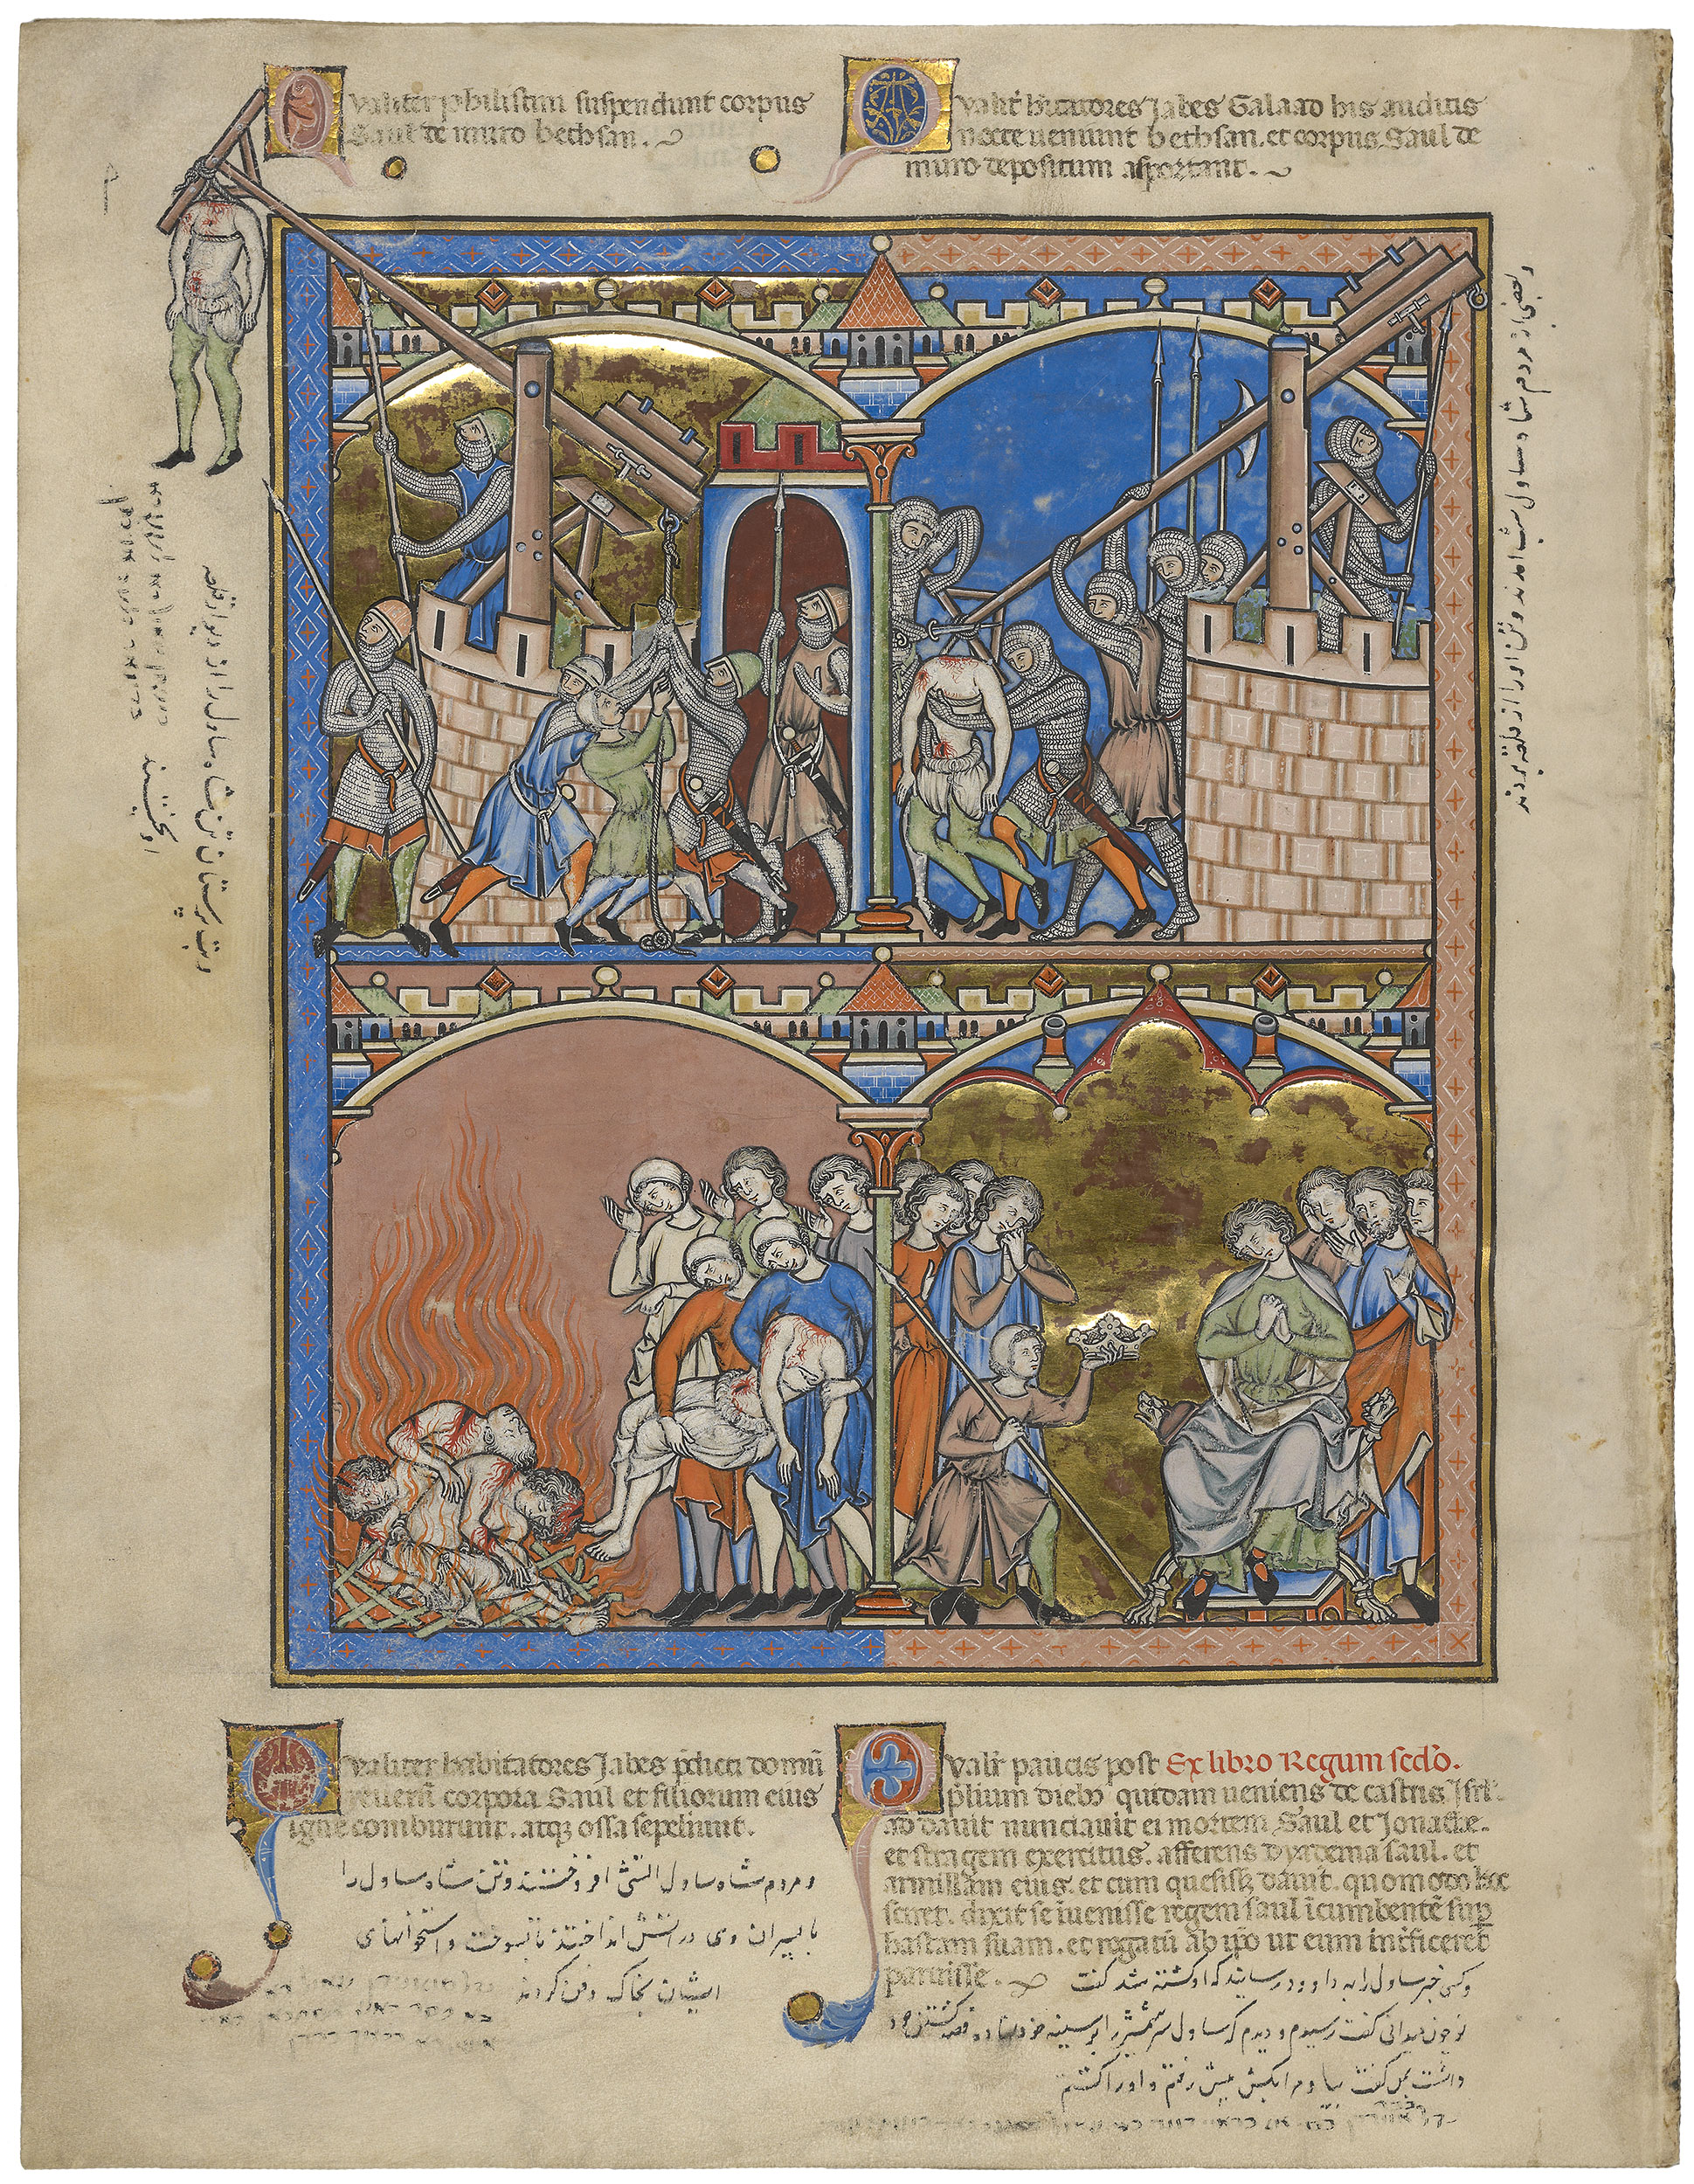 Qualiter philistiim suspendunt corpus
Saul de muro bethsan.
Qualit̄ h̄itatores Jabes Galaad his auditis
nocte ueniunt bethsan. et corpus Saul de
muro depositum asportant.
و بت پرستان تن شاه ساول را از دیوار قلعه
اویختند
و بعضی از مردم شاه ساول شب امدند و تن او را از قلعه بردند
Qualiter habitatores Jabes p̄dicti domū
reuersi corpora Saul et filiorum eius
igne comburunt. atq; ossa sepeliunt.
و مردم شاه ساول اتش افروختند و تن شاه ساول را
با پسران وی در اتش انداختند تا بسوخت و استخوانهای
ایشان بخاک دفن کردند
Qualit̄ paucis post Ex libro Regum sc̄do.
p̄lium dieb; quidam ueniens de castris Isrl̄
ad dauit nunciauit ei mortem Saul et Jonathe.
et stragem exercitus. afferens dyadema saul. et
armillam eius. et cum quesisset dauit. quomodo hoc
sciret. dixit se īuenisse regem saul īcumbentē sup̄
hastam suam. et rogatū ab ip̄o ut eum interficeret
paruisse.
و کسی خبر ساول را به داوود رسانید که او کشته شد گفت
تو چون میدانی گفت رسیدم و دیدم که ساول سر شمشیر را بر سینه خود نهاده قصد کشتن خود
داشت بمن گفت بیا و مرا بکش پیش رفتم و او را کشتم